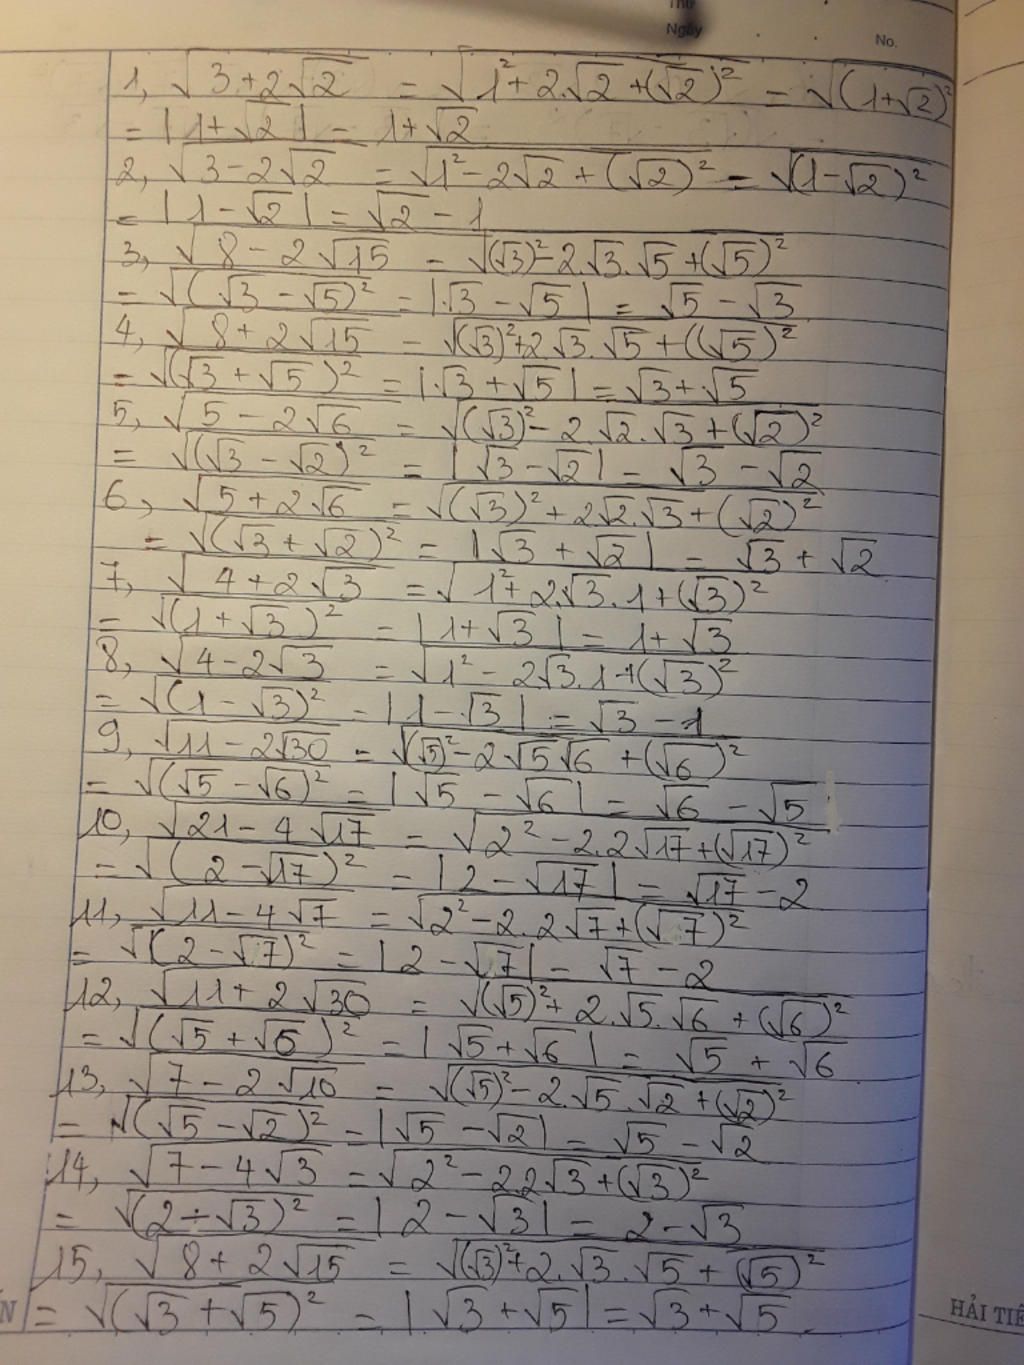 Thứ
Ngày
No.
1, √(3+2√2) = √(1²+2.√2+(√2)²) = √((1+√2)²)
= |1+√2| = 1+√2
2, √(3-2√2) = √(1²-2√2+(√2)²) = √((1-√2)²)
= |1-√2| = √2-1
3, √(8-2√15) = √((√3)²-2.√3.√5+(√5)²)
= √((√3-√5)²) = |√3-√5| = √5-√3
4, √(8+2√15) = √((√3)²+2√3.√5+(√5)²)
= √((√3+√5)²) = |√3+√5| = √3+√5
5, √(5-2√6) = √((√3)²-2.√2.√3+(√2)²)
= √((√3-√2)²) = |√3-√2| = √3-√2
6, √(5+2√6) = √((√3)²+2√2.√3+(√2)²)
= √((√3+√2)²) = |√3+√2| = √3+√2
7, √(4+2√3) = √(1²+2.√3.1+(√3)²)
= √((1+√3)²) = |1+√3| = 1+√3
8, √(4-2√3) = √(1²-2√3.1+(√3)²)
= √((1-√3)²) = |1-√3| = √3-1
9, √(11-2√30) = √((√5)²-2√5√6+(√6)²)
= √((√5-√6)²) = |√5-√6| = √6-√5
10, √(21-4√17) = √(2²-2.2√17+(√17)²)
= √((2-√17)²) = |2-√17| = √17-2
11, √(11-4√7) = √(2²-2.2√7+(√7)²)
= √((2-√7)²) = |2-√7| = √7-2
12, √(11+2√30) = √((√5)²+2.√5.√6+(√6)²)
= √((√5+√6)²) = |√5+√6| = √5+√6
13, √(7-2√10) = √((√5)²-2.√5.√2+(√2)²)
= √((√5-√2)²) = |√5-√2| = √5-√2
14, √(7-4√3) = √(2²-2.2√3+(√3)²)
= √((2-√3)²) = |2-√3| = 2-√3
15, √(8+2√15) = √((√3)²+2.√3.√5+(√5)²)
= √((√3+√5)²) = |√3+√5| = √3+√5
HẢI TIẾ